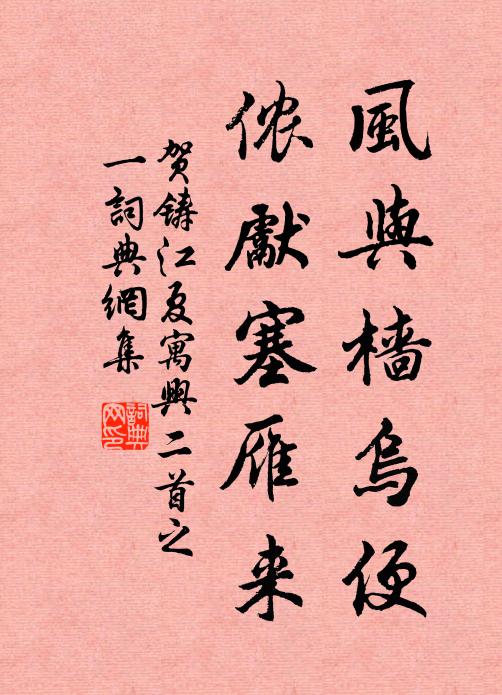 風與檣烏便
侬獻塞雁来
贺铸江夏寓興二首之
一詞典網集
詞典网印